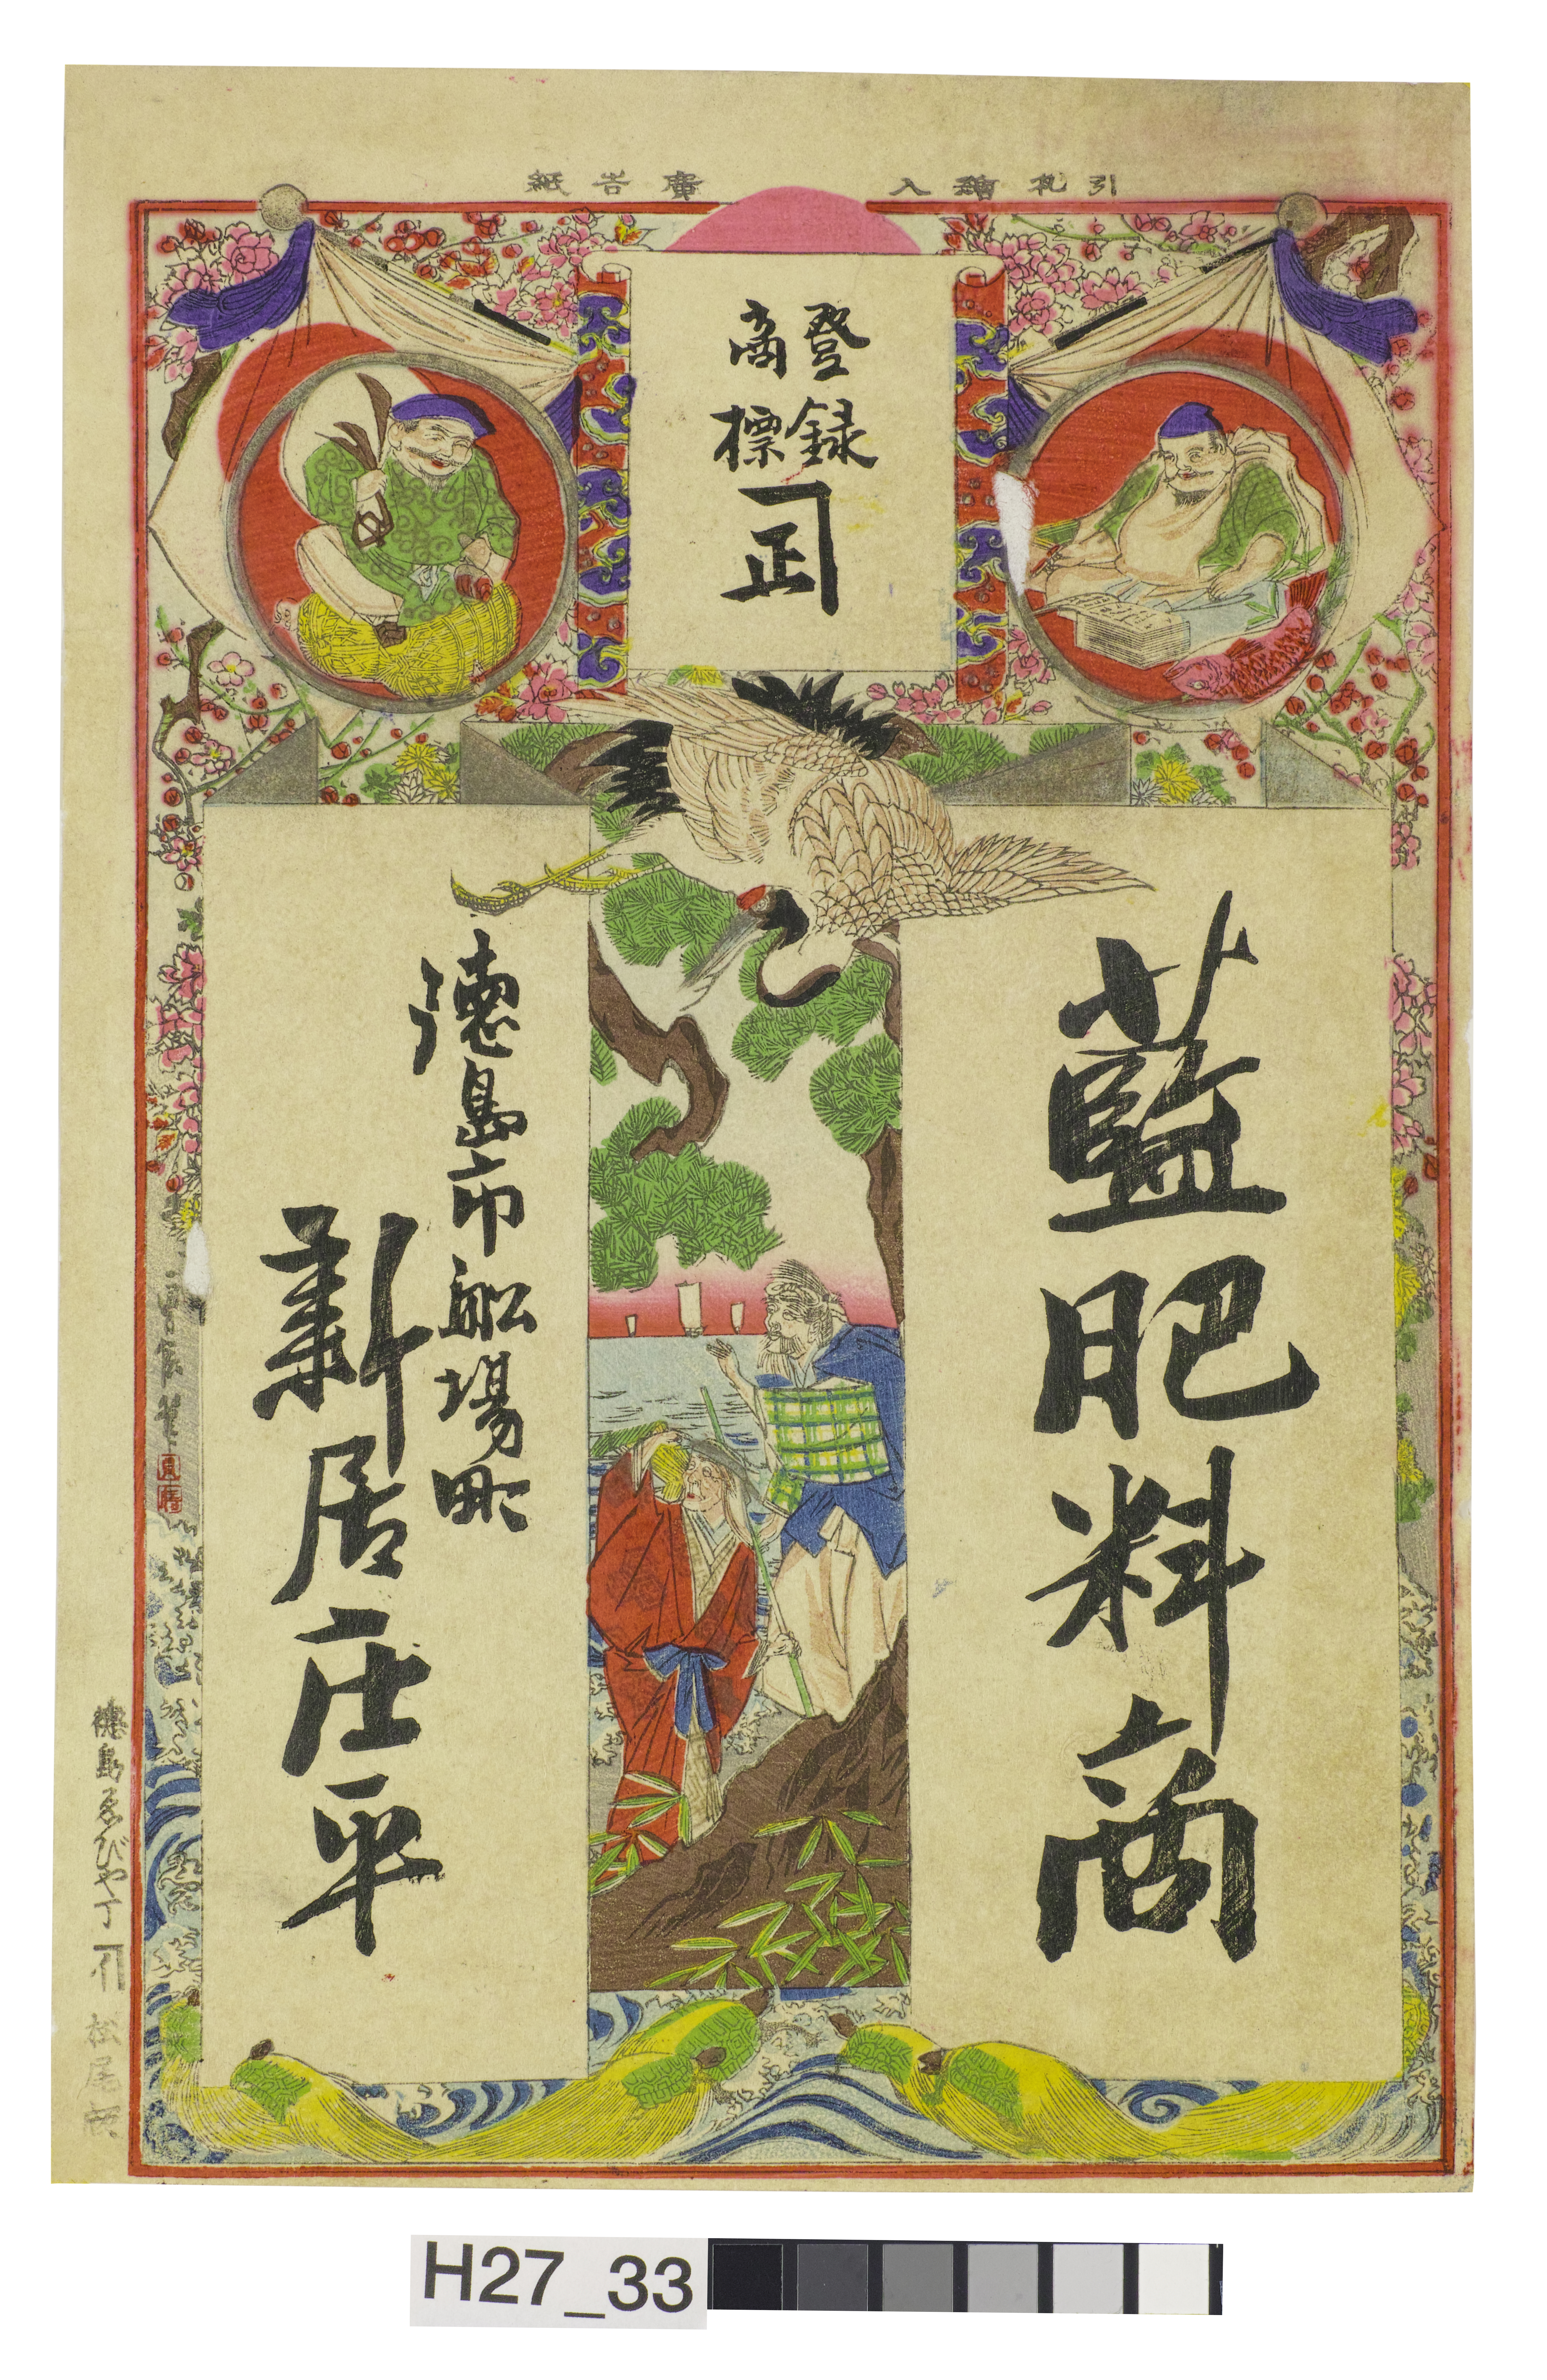 引札繪入
廣告紙
登録
商標
正
藍肥料商
徳島市船場町
新居庄平
徳島ゑびや丁
松尾
H27_33